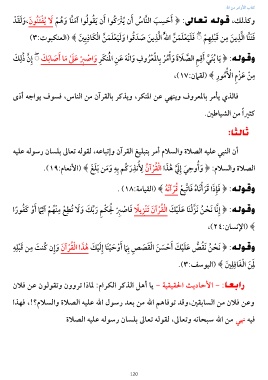 كتاب الأرض من ١٥
وكذلك، قوله تعالى: ﴿ أَحَسِبَ النَّاسُ أَن يُتْرَكُوا أَن يَقُولُوا آمَنَّا وَهُمْ لَا يُفْتَنُونَ،وَلَقَدْ
فَتَنَّا الَّذِينَ مِن قَبْلِهِمْ ۖ فَلَيَعْلَمَنَّ اللَّهُ الَّذِينَ صَدَقُوا وَلَيَعْلَمَنَّ الْكَاذِبِينَ ﴾ (العنكبوت:٣)
وقوله: ﴿ يَا بُنَيَّ أَقِمِ الصَّلَاةَ وَأْمُرْ بِالْمَعْرُوفِ وَانْهَ عَنِ الْمُنكَرِ وَاصْبِرْ عَلَىٰ مَا أَصَابَكَ ۖ إِنَّ ذَٰلِكَ
مِنْ عَزْمِ الْأُمُورِ ﴾ (لقمان:١٧)،
فالذي يأمر بالمعروف وينهى عن المنكر، ويذكر بالقرآن من الناس، فسوف يواجه أذى
كثيراً من الشياطين.
ثالثا:
أن النبي عليه الصلاة والسلام أمر بتبليغ القرآن وإتباعه، لقوله تعالى بلسان رسوله عليه
الصلاة والسلام: ﴿ وَأُوحِيَ إِلَيَّ هَٰذَا الْقُرْآنُ لِأُنذِرَكُم بِهِ وَمَن بَلَغَ ﴾ (الأنعام:١٩).
وقوله: ﴿ فَإِذَا قَرَأْنَاهُ فَاتَّبِعْ قُرْآنَهُ ﴾ (القيامة:١٨) .
وقوله: ﴿ إِنَّا نَحْنُ نَزَّلْنَا عَلَيْكَ الْقُرْآنَ تَنزِيلًا فَاصْبِرْ لِحُكْمِ رَبِّكَ وَلَا تُطِعْ مِنْهُمْ آثِمًا أَوْ كَفُورًا
﴾ (الإنسان:٢٤)،
وقوله: ﴿ نَحْنُ نَقُصُّ عَلَيْكَ أَحْسَنَ الْقَصَصِ بِمَا أَوْحَيْنَا إِلَيْكَ هَٰذَا الْقُرْآنَ وَإِن كُنتَ مِن قَبْلِهِ
لَمِنَ الْغَافِلِينَ ﴾ (اليوسف:٣).
رابعا: - الأحاديث الحقيقية - يا أهل الذكر الكرام: لماذا تروون وتقولون عن فلان
وعن فلان من السابقين،وقد توفاهم الله من بعد رسول الله عليه الصلاة والسلام؟!، فهذا
فيه نهي من الله سبحانه وتعالى، لقوله تعالى بلسان رسوله عليه الصلاة
120